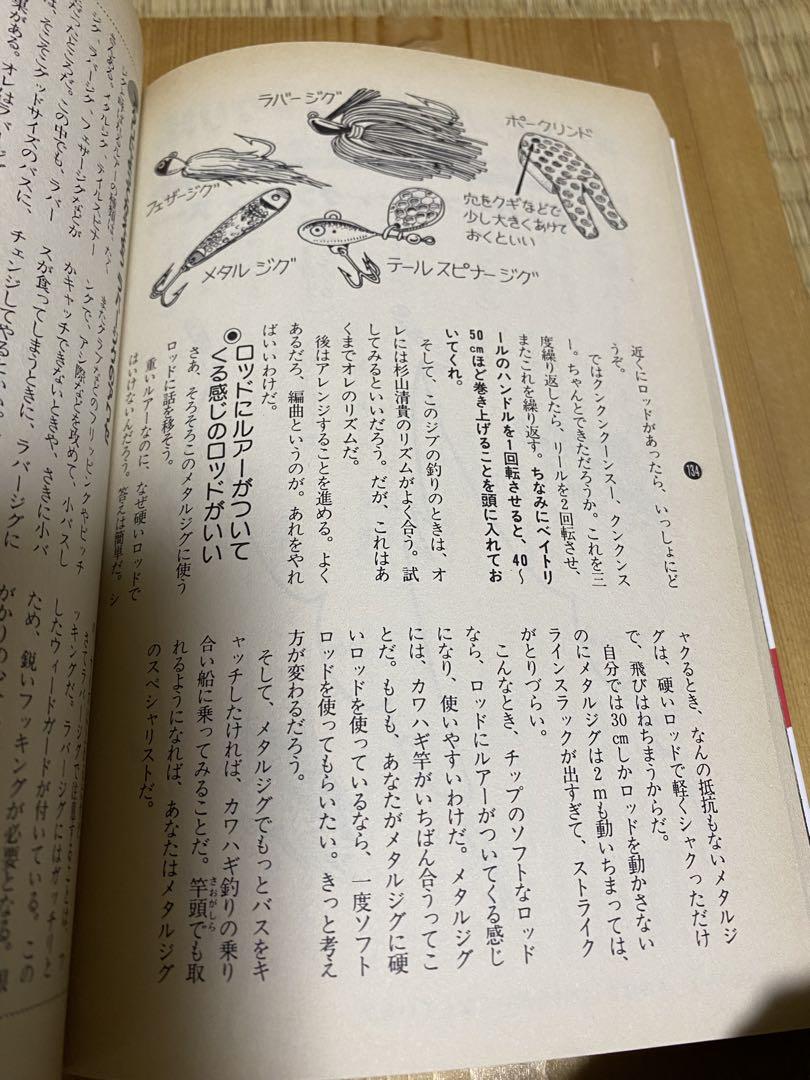 ラバージグ
ポークリンド
穴をクギなどで
少し大きくあけて
おくといい
フェザージグ
メタルジグ
テールスピナージグ
134
近くにロッドがあったら、いっしょにど
うぞ。
ではクンクンクーンスー、クンクンス
ー。ちゃんとできただろうか。これを三
度繰り返したら、リールを2回転させ、
またこれを繰り返す。ちなみにベイトリ
ールのハンドルを1回転させると、40〜
50cmほど巻き上げることを頭に入れてお
いてくれ。
そして、このジブの釣りのときは、オ
レには杉山清貴のリズムがよく合う。試
してみるといいだろう。だが、これはあ
くまでオレのリズムだ。
後はアレンジすることを進める。よく
あるだろ、編曲というのが。あれをやれ
ばいいわけだ。
◉ロッドにルアーがついて
くる感じのロッドがいい
さあ、そろそろこのメタルジグに使う
ロッドに話を移そう。
重いルアーなのに、なぜ硬いロッドで
はいけないんだろう。答えは簡単だ。シ
ャクるとき、なんの抵抗もないメタルジ
グは、硬いロッドで軽くシャクっただけ
で、飛びはねちまうからだ。
自分では30cmしかロッドを動かさない
のにメタルジグは2mも動いちまっては、
ラインスラックが出すぎて、ストライク
がとりづらい。
こんなとき、チップのソフトなロッド
なら、ロッドにルアーがついてくる感じ
になり、使いやすいわけだ。メタルジグ
には、カワハギ竿がいちばん合うってこ
とだ。もしも、あなたがメタルジグに硬
いロッドを使っているなら、一度ソフト
ロッドを使ってもらいたい。きっと考え
方が変わるだろう。
そして、メタルジグでもっとバスをキ
ャッチしたければ、カワハギ釣りの乗り
合い船に乗ってみることだ。竿頭でも取
さおがしら
れるようになれば、あなたはメタルジグ
のスペシャリストだ。
ラバー
そこそこグッドサイズのバスに、
ングで、アシ際などを攻めて、小バスし
かキャッチできないときや、さきに小バ
スが食ってしまうときに、ラバージグに
チェンジしてやるといい。
ッキングだ。ラバージグにはガッチリと
したウィードガードが付いている。この
ため、鋭いフッキングが必要となる。